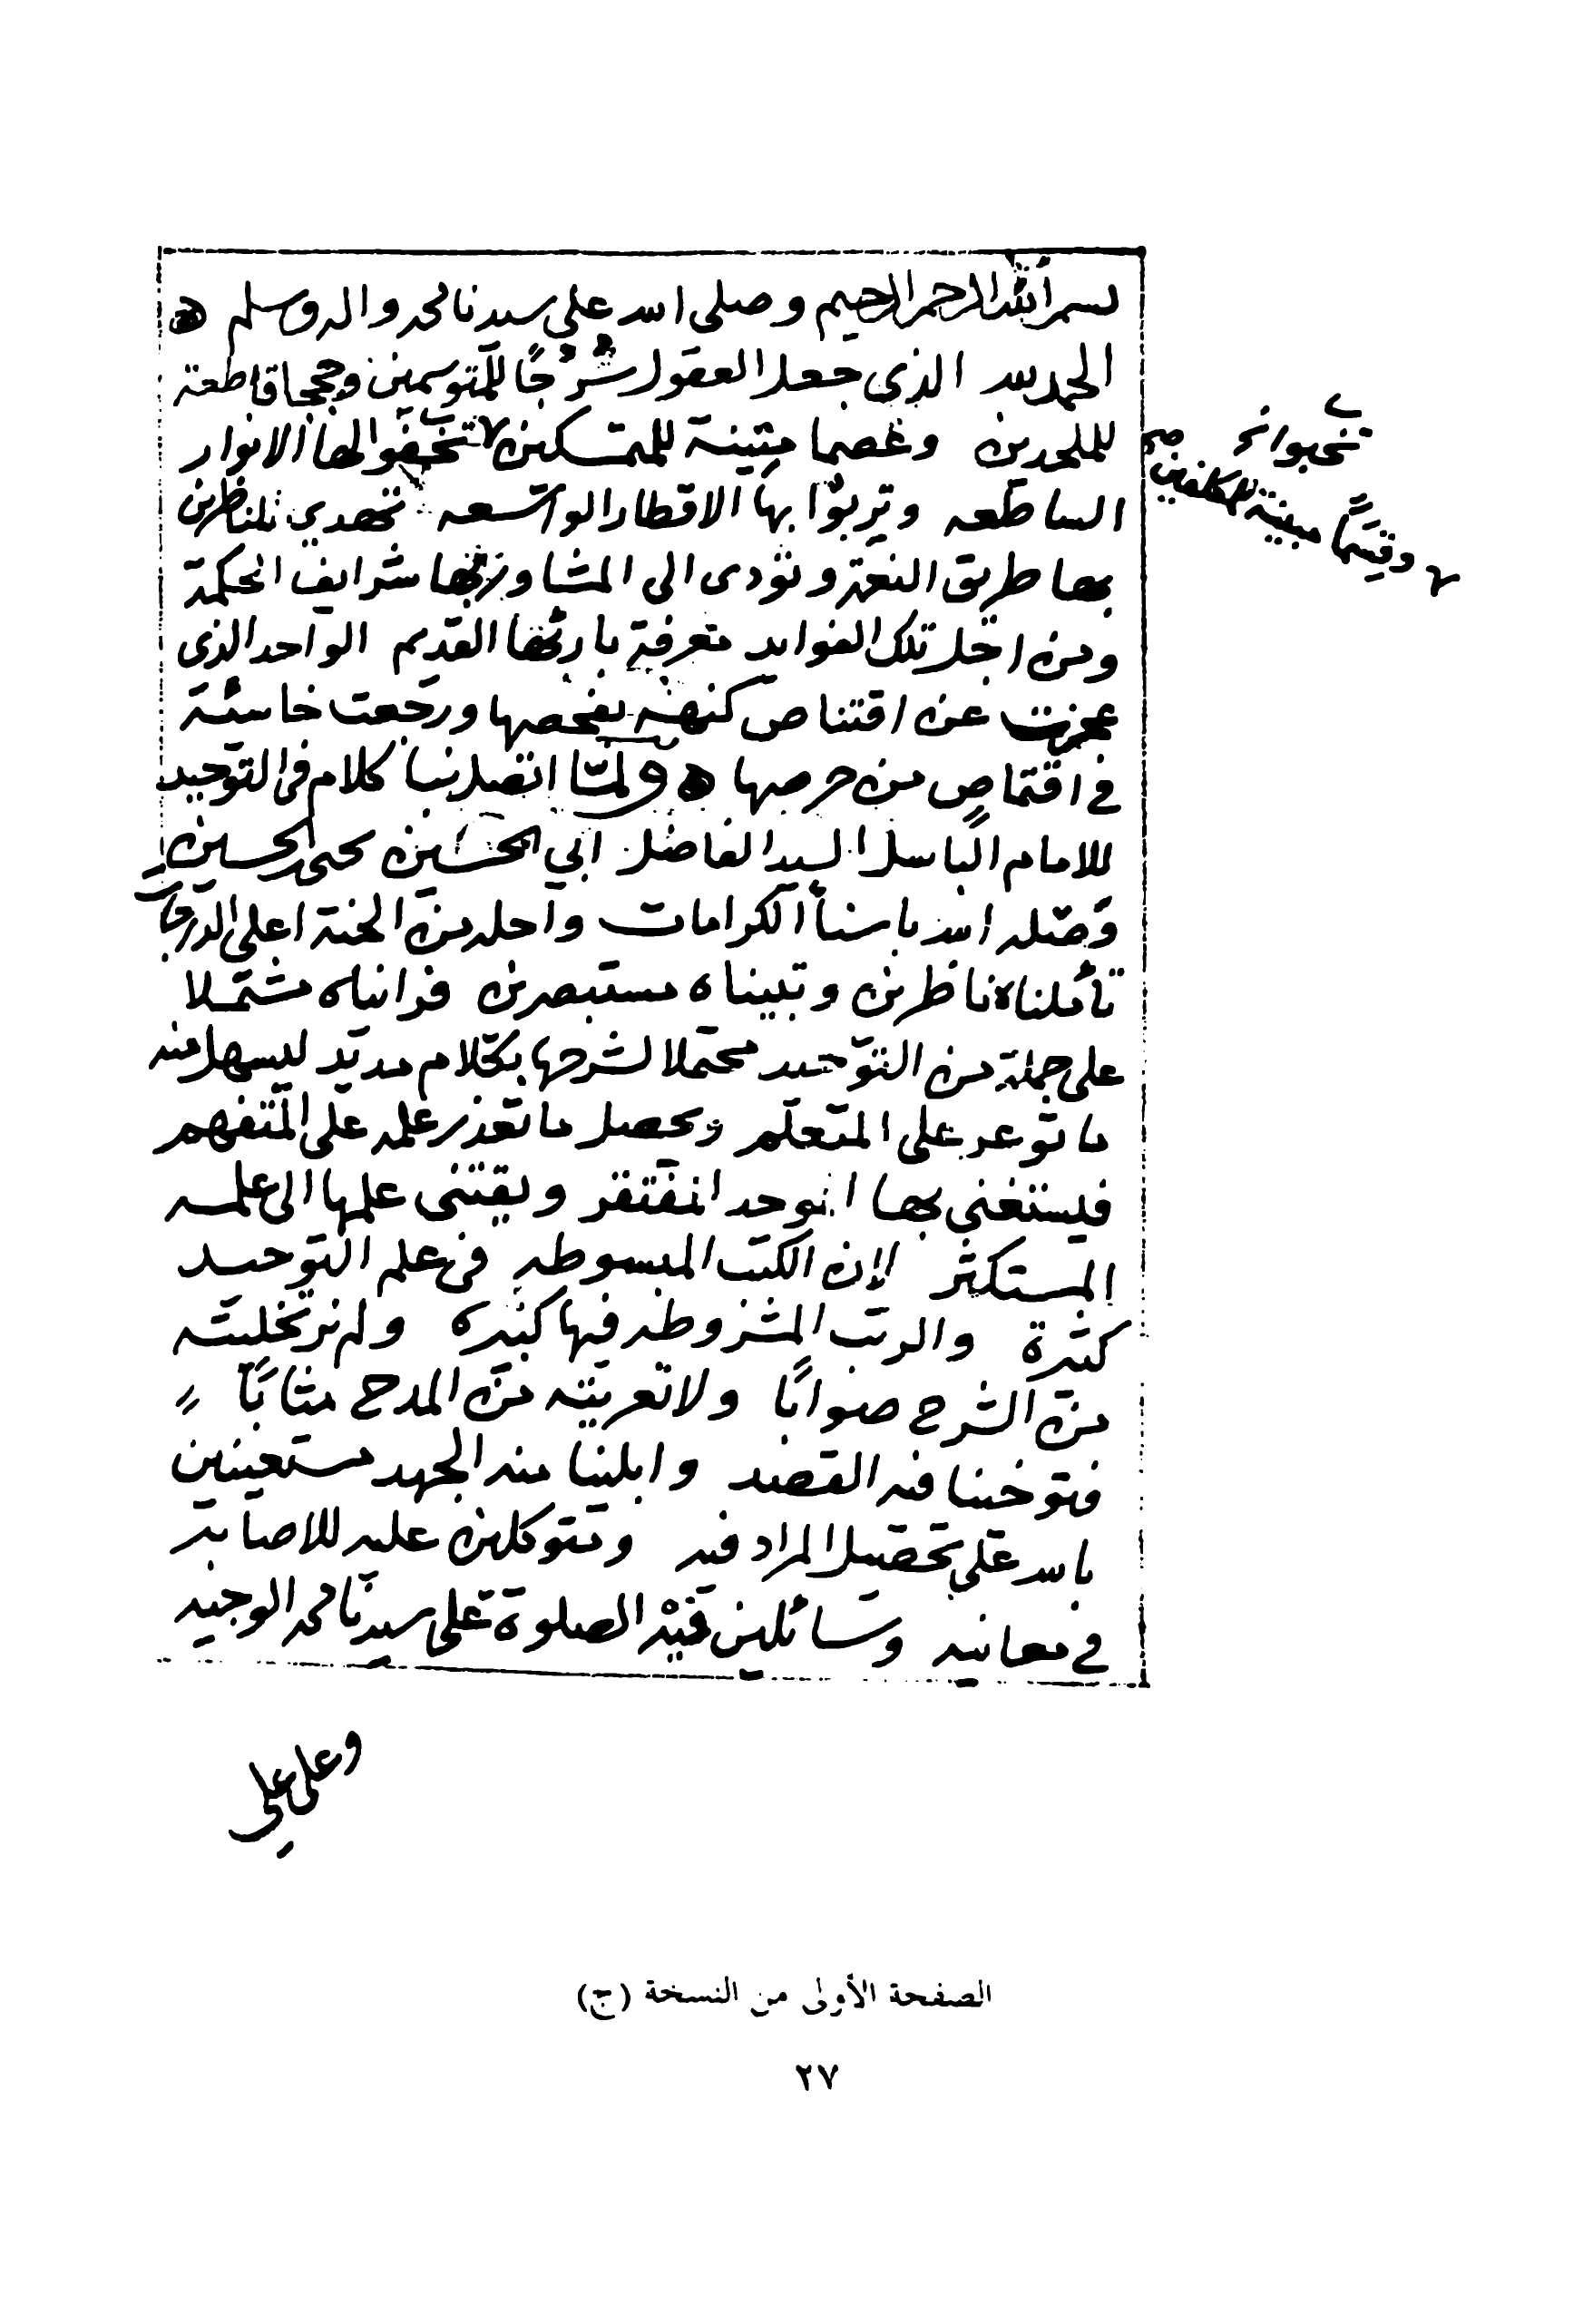 بسم الله الرحمن الرحيم وصلى الله على سيدنا محمد واله وسلم
الحمد لله الذى جعل العقول سُرُجًا للمتوسمين وحججا قاطعة
للملحدين وعصما متينة للمتمسكين الانوار
الساطعه وتربوا بها الاقطار الواسعه تهدي للناظرين
بها طريق النعمة وتؤدى الى المشاور بها شرايف الحكمة
ومن اجل تلك الفوايد معرفة بارئها القديم الواحد الذى
عجزت عن اقتناص كنهه بفحصها ورجعت خاسئة
في من حرصها ولمّا اتصل بنا كلام في التوحيد
للامام الباسل السيد الفاضل ابي الحسين يحيى الحسين
وصله الله باسنأ الكرامات واحله من الجنة اعلى الدرجات
تأملناه ناظرين وتبيناه مستبصرين فرايناه مشتملا
على جملة من التوحيد محتملا لشرحها بكلام مديد ليسهل منه
ما توعر على المتعلم ويحصل ما تعذر علمه على المتفهم
فيستغني بها الموحد المفتقر ويقتنى علمها الى علمه
المستكثر لان الكتب المبسوطه في علم التوحيد
كثيرة والرتب المشروطه فيها كبيره ولم نر تخليته
من الشرح صوابًا ولا تعريته من المدح مثابًا
فتوخينا فيه القصد وابلينا منه الجهد مستعينين
بالله على تحصيل المراد فيه ومتوكلين عليه للاصابة
في معانيه وسائلين منه الصلوة على سيدنا محمد الوجيه
وعلى علي
وقيمًا مبينة للمكلفين صح
الصفحة الأولى من النسخة (ج)
٢٧